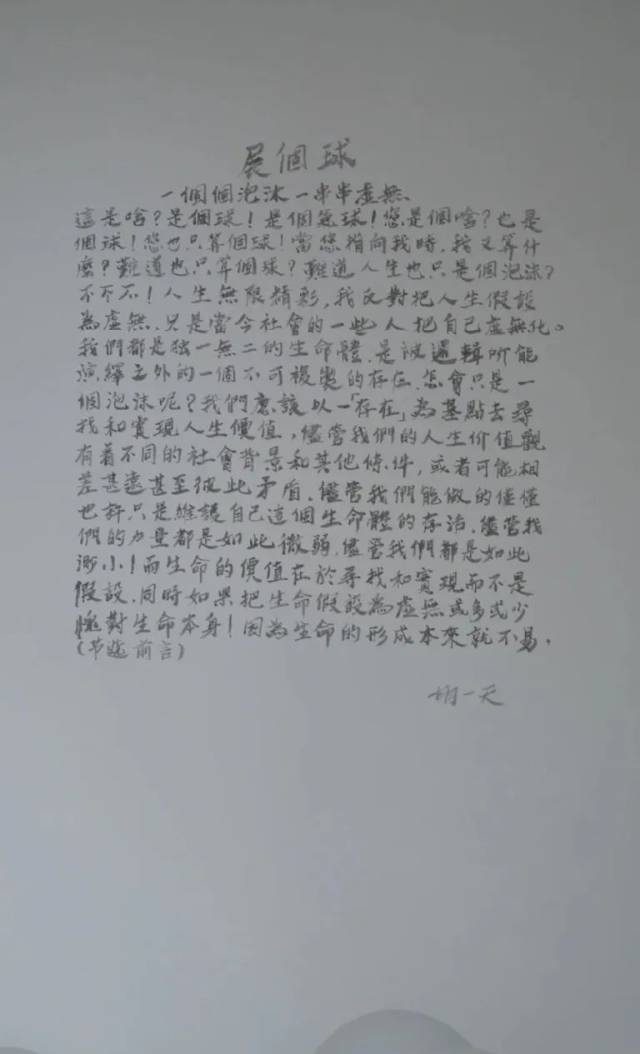 展個球
一個個泡沫 一串串虛無
這是啥?是個球!是個氣球!您是個啥?也是
個球!您也只算個球!當您指向我時,我又算什
麼?難道也只算個球?難道人生也只是個泡沫?
不不不!人生無限精彩,我反對把人生假設
為虛無.只是當今社會的一些人把自己虛無化。
我們都是独一無二的生命體.是被邏輯所能
演繹之外的一個不可複製的存在.怎會只是一
個泡沫呢?我們應該以一「存在」為基點去尋
找和實現人生價值,儘管我們的人生价值觀
有着不同的社會背景和其他條件,或者可能相
差甚遠甚至彼此矛盾.儘管我們能做的僅僅
也許只是維護自己這個生命體的存活.儘管我
們的力量都是如此微弱.儘管我們都是如此
渺小!而生命的價值在於尋找和實現而不是
假設.同時如果把生命假設為虛無或多或少
愧對生命本身!因為生命的形成本來就不易.
(节选前言)
胡一天